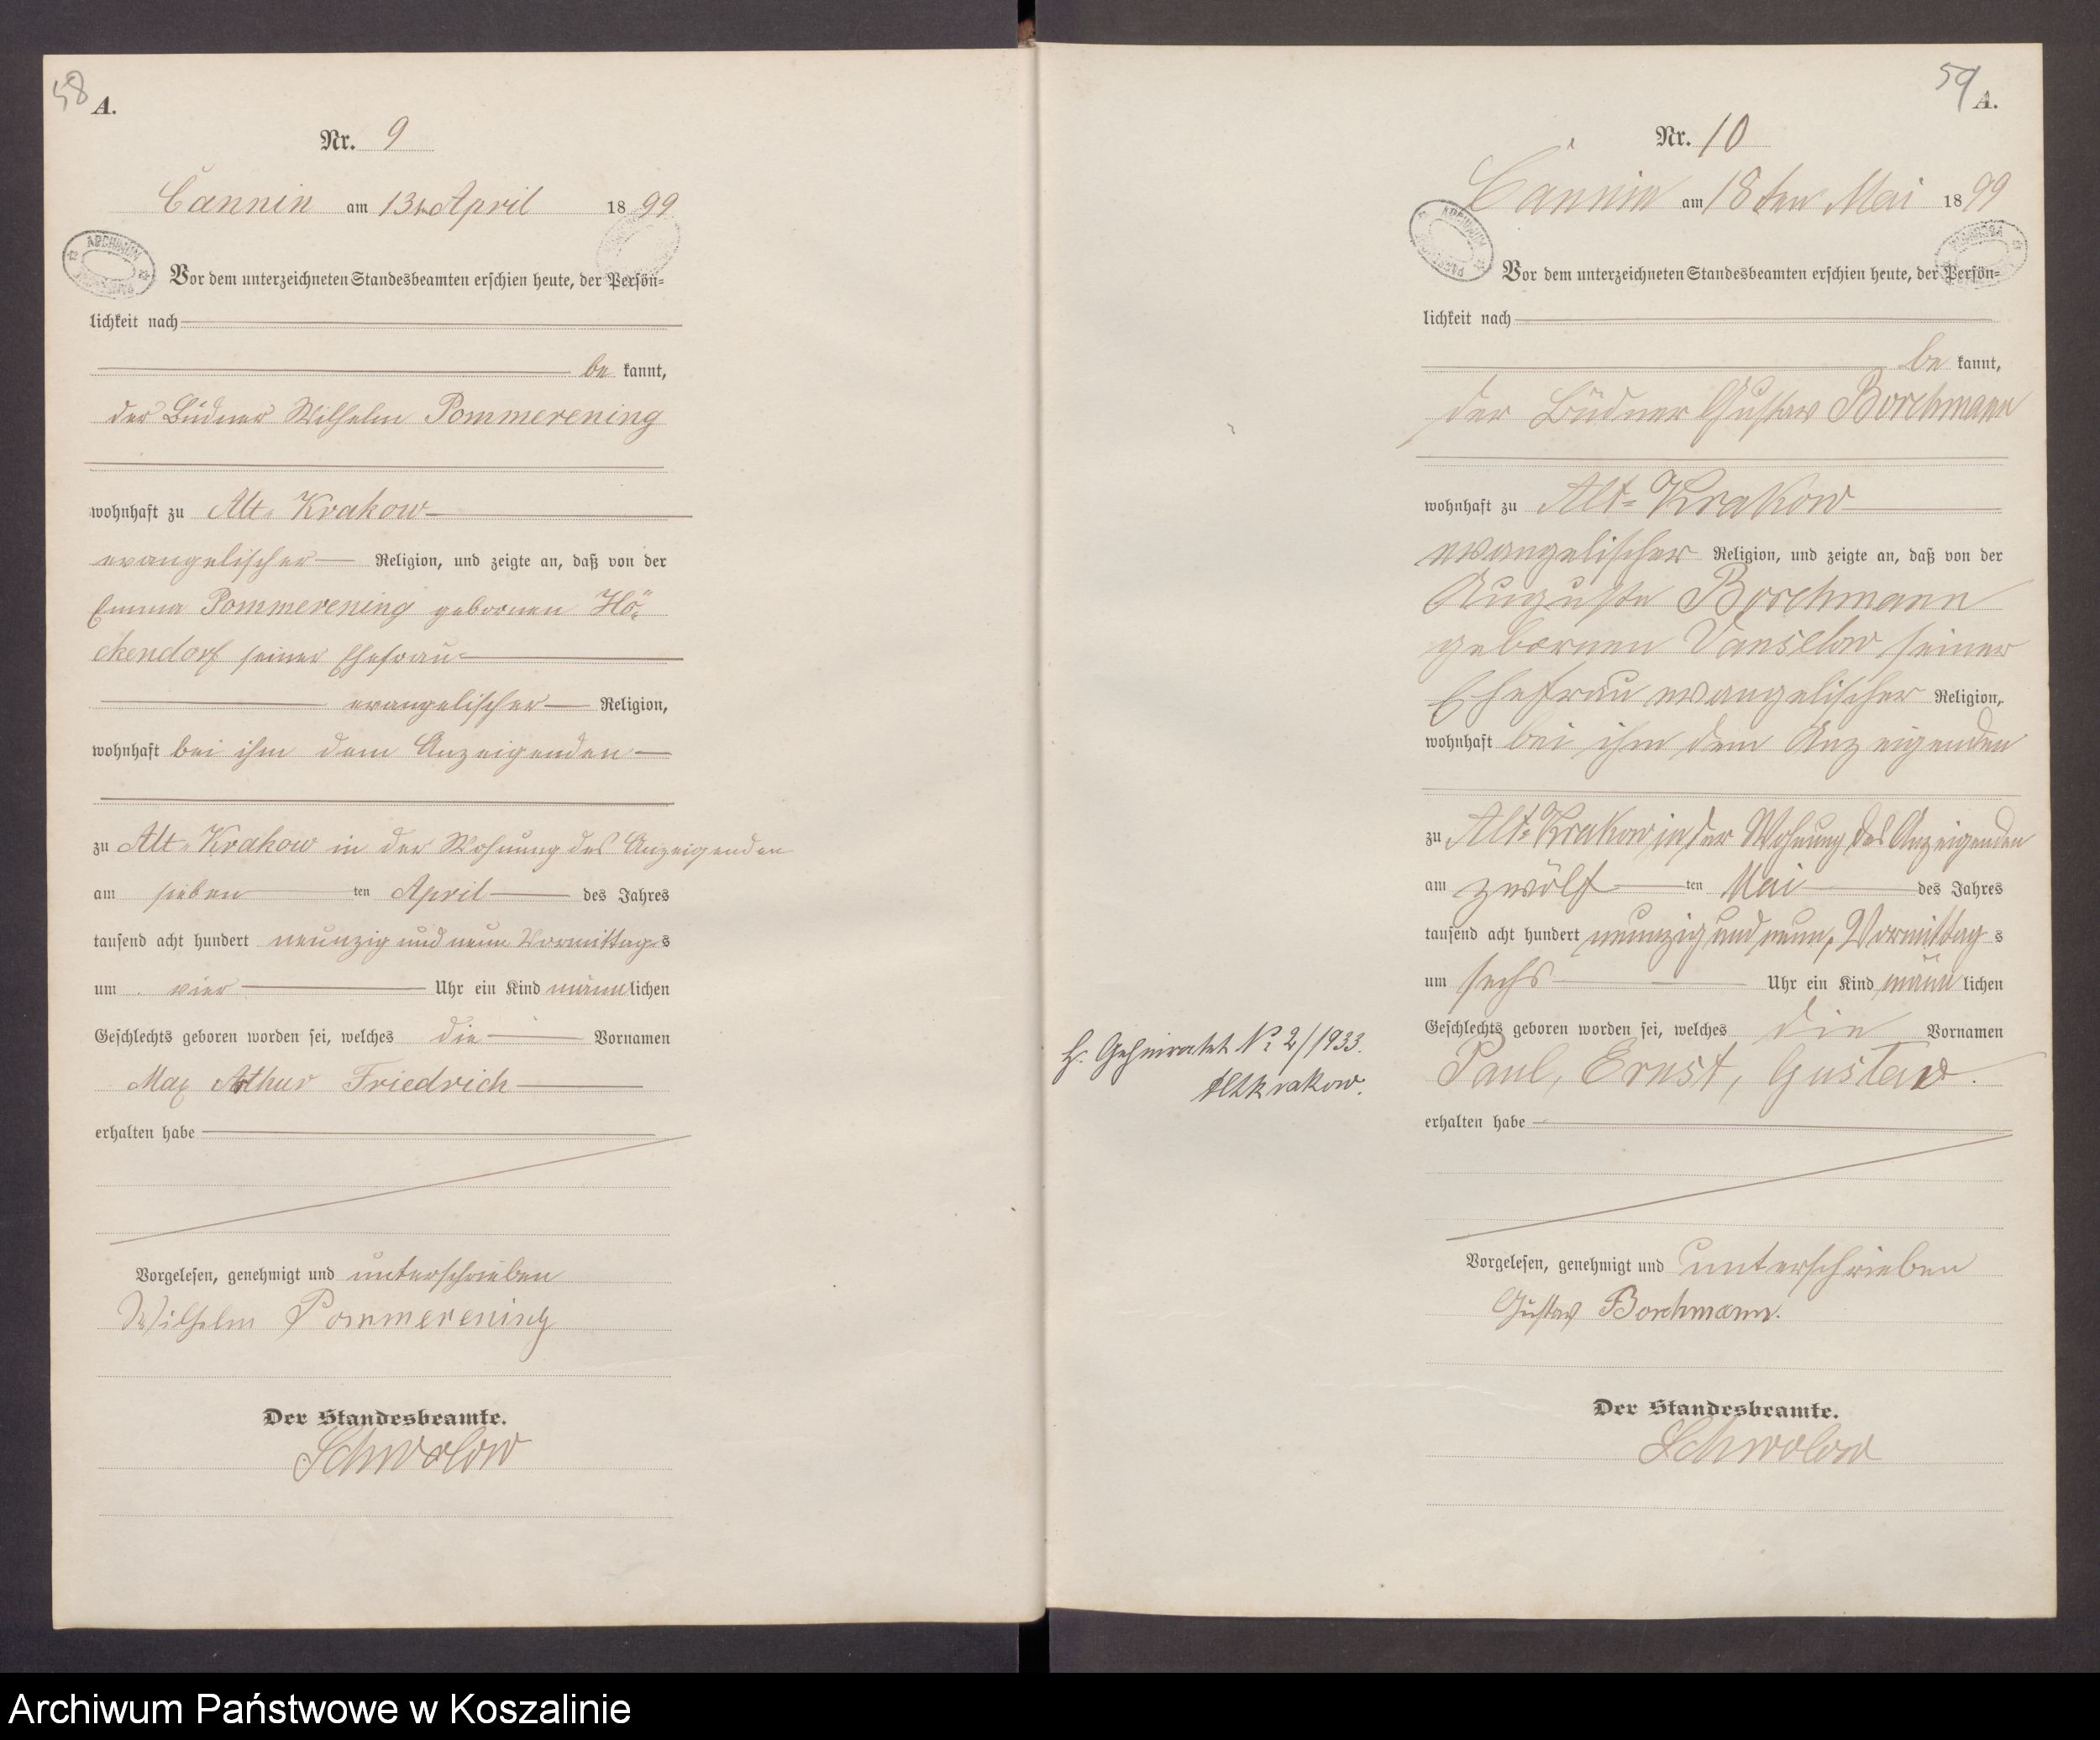 58 A.
Nr. 9
Cannin am 13ten April 1899
ARCHIWUM
Vor dem unterzeichneten Standesbeamten erschien heute, der Persön-
lichkeit nach
be kannt,
der Büdner Wilhelm Pommerening
wohnhaft zu Alt-Krakow
evangelischer Religion, und zeigte an, daß von der
Emma Pommerening gebornen Hö-
ckendorf seiner Ehefrau
evangelischer Religion,
wohnhaft bei ihm dem Anzeigenden
zu Alt-Krakow in der Wohnung des Anzeigenden
am sieben ten April des Jahres
tausend acht hundert neunzig und neun Vormittags
um vier Uhr ein Kind männlichen
Geschlechts geboren worden sei, welches die Vornamen
Max Arthur Friedrich
erhalten habe
Vorgelesen, genehmigt und unterschrieben
Wilhelm Pommerening
Der Standesbeamte.
Schwolow
59 A.
Nr. 10
Cannin am 18ten Mai 1899
ARCHIWUM
Vor dem unterzeichneten Standesbeamten erschien heute, der Persön-
lichkeit nach
be kannt,
der Büdner Gustav Borchmann
wohnhaft zu Alt-Krakow
evangelischer Religion, und zeigte an, daß von der
Auguste Borchmann
gebornen Vanselow seiner
Ehefrau evangelischer Religion,
wohnhaft bei ihm dem Anzeigenden
zu Alt-Krakow in der Wohnung des Anzeigenden
am zwölf ten Mai des Jahres
tausend acht hundert neunzig und neun, Vormittags
um sechs Uhr ein Kind männlichen
Geschlechts geboren worden sei, welches die Vornamen
Paul, Ernst, Gustav.
erhalten habe
Vorgelesen, genehmigt und unterschrieben
Gustav Borchmann.
Der Standesbeamte.
Schwolow
Geheiratet No 2/1933.
Altkrakow.
Archiwum Państwowe w Koszalinie